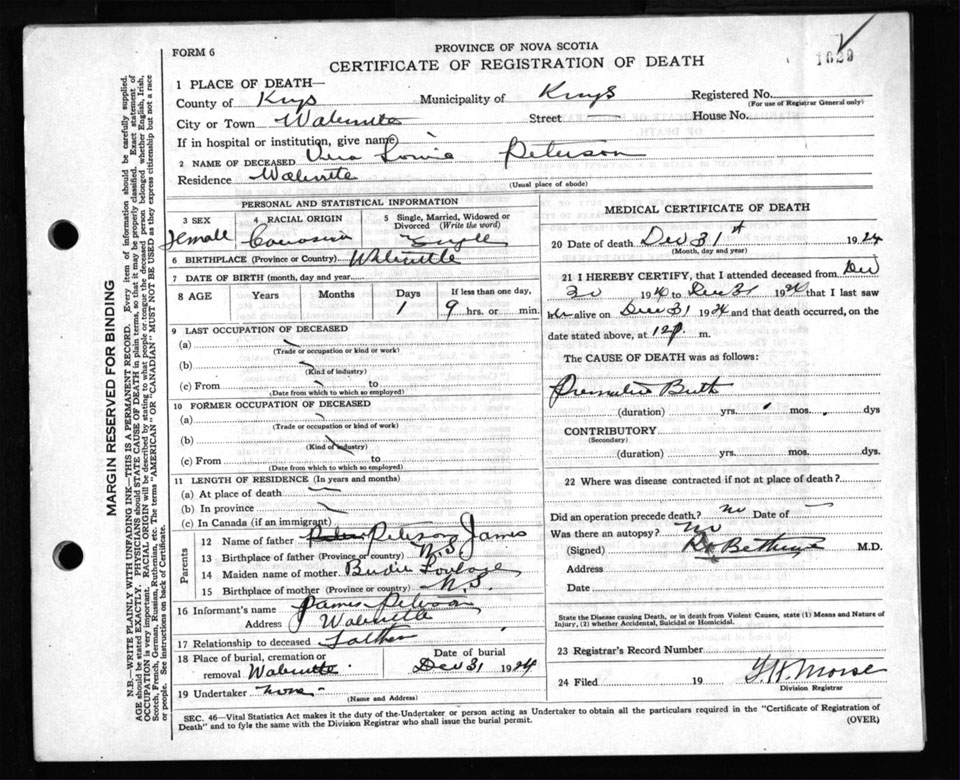 FORM 6
PROVINCE OF NOVA SCOTIA
CERTIFICATE OF REGISTRATION OF DEATH
1629
MARGIN RESERVED FOR BINDING
N.B.—WRITE PLAINLY WITH UNFADING INK—THIS IS A PERMANENT RECORD. Every item of information should be carefully supplied.
AGE should be stated EXACTLY. PHYSICIANS should STATE CAUSE OF DEATH in plain terms, so that it may be properly classified. Exact statement of
OCCUPATION is very important. RACIAL ORIGIN will be described by stating to what people or tongue the deceased person belonged whether English, Irish,
Scotch, French, German, Russian, Ruthenian, etc. The terms "AMERICAN" OR "CANADIAN" MUST NOT BE USED as they express citizenship but not a race
of people. See instructions on back of Certificate.
1 PLACE OF DEATH—
County of Kings Municipality of Kings Registered No.
(For use of Registrar General only)
City or Town Street House No.
If in hospital or institution, give name
2 NAME OF DECEASED Peterson
Residence
(Usual place of abode)
PERSONAL AND STATISTICAL INFORMATION
3 SEX Female
4 RACIAL ORIGIN
5 Single, Married, Widowed or Divorced (Write the word) Single
6 BIRTHPLACE (Province or Country)
7 DATE OF BIRTH (month, day and year)
8 AGE Years Months Days 1 If less than one day, 9 hrs. or min.
9 LAST OCCUPATION OF DECEASED
(a)
(Trade or occupation or kind or work)
(b)
(Kind of industry)
(c) From to
(Date from which to which so employed)
10 FORMER OCCUPATION OF DECEASED
(a)
(Trade or occupation or kind of work)
(b)
(Kind of industry)
(c) From
(Date from which to which so employed)
11 LENGTH OF RESIDENCE (In years and months)
(a) At place of death
(b) In province
(c) In Canada (if an immigrant)
Parents
12 Name of father Peterson James
13 Birthplace of father (Province or country) N.S.
14 Maiden name of mother
15 Birthplace of mother (Province or country) N.S.
16 Informant's name James Peterson
Address
17 Relationship to deceased Father
18 Place of burial, cremation or removal
Date of burial Dec 31 1924
19 Undertaker none
(Name and Address)
MEDICAL CERTIFICATE OF DEATH
20 Date of death Dec 31st 1924
(Month, day and year)
21 I HEREBY CERTIFY, that I attended deceased from Dec
30 1924 to Dec 31 1924 that I last saw
her alive on Dec 31 1924 and that death occurred, on the
date stated above, at 12 p. m.
The CAUSE OF DEATH was as follows:
Premature Birth
(duration) yrs. mos. dys
CONTRIBUTORY
(Secondary)
(duration) yrs. mos. dys.
22 Where was disease contracted if not at place of death?
Did an operation precede death? no Date of
Was there an autopsy? no
(Signed) M.D.
Address
Date
State the Disease causing Death, or in death from Violent Causes, state (1) Means and Nature of
Injury, (2) whether Accidental, Suicidal or Homicidal.
23 Registrar's Record Number
24 Filed 19 Morse
Division Registrar
SEC. 46—Vital Statistics Act makes it the duty of the-Undertaker or person acting as Undertaker to obtain all the particulars required in the "Certificate of Registration of
Death" and to fyle the same with the Division Registrar who shall issue the burial permit.
(OVER)